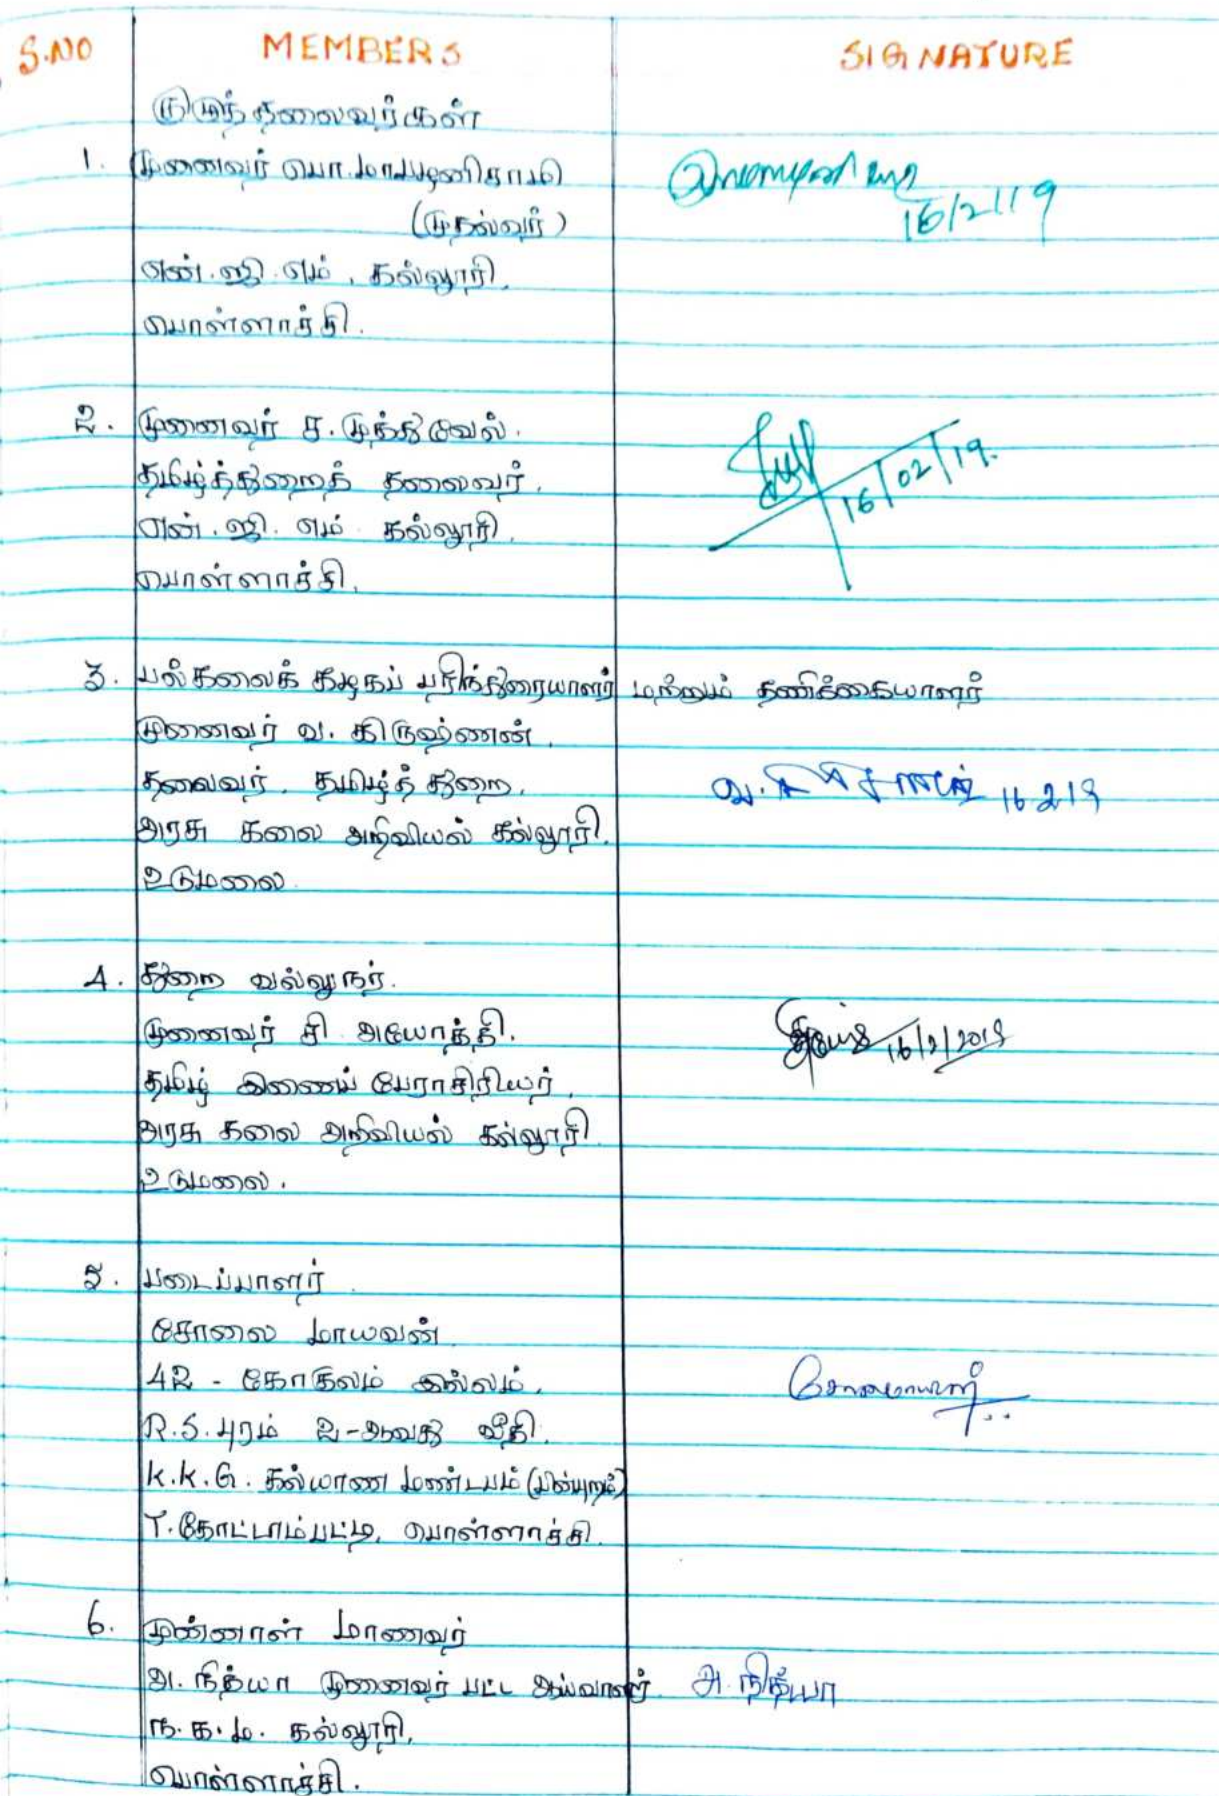 S.NO MEMBERS SIGNATURE
குழுத்தலைவர்கள்
1. முனைவர் பொ.மா.பழனிசாமி
(முதல்வர்) 16/2/19
என்.ஜி.எம். கல்லூரி,
பொள்ளாச்சி.
2. முனைவர் ச.முத்துவேல்.
தமிழ்த்துறைத் தலைவர், 16/02/19.
என்.ஜி.எம் கல்லூரி,
பொள்ளாச்சி.
3. பல்கலைக் கழகப் பரிந்துரையாளர் மற்றும் தணிக்கையாளர்
முனைவர் வ. கிருஷ்ணன்.
தலைவர், தமிழ்த் துறை, 16 2 19
அரசு கலை அறிவியல் கல்லூரி,
உடுமலை
4. துறை வல்லுநர்.
முனைவர் சி அயோத்தி. 16/2/2019
தமிழ் இணைப் பேராசிரியர்,
அரசு கலை அறிவியல் கல்லூரி
உடுமலை.
5. படைப்பாளர்
சோலை மாயவன்
42 - கோகலம் இல்லம்,
R.S.புரம் 2-ஆவது வீதி.
K.K.G. கல்யாண மண்டபம் (பின்புறம்)
T.கோட்டாம்பட்டி, பொள்ளாச்சி.
6. முன்னாள் மாணவர்
அ. நித்யா முனைவர் பட்ட ஆய்வாளர் அ. நித்யா
ந.க.ம. கல்லூரி,
பொள்ளாச்சி.